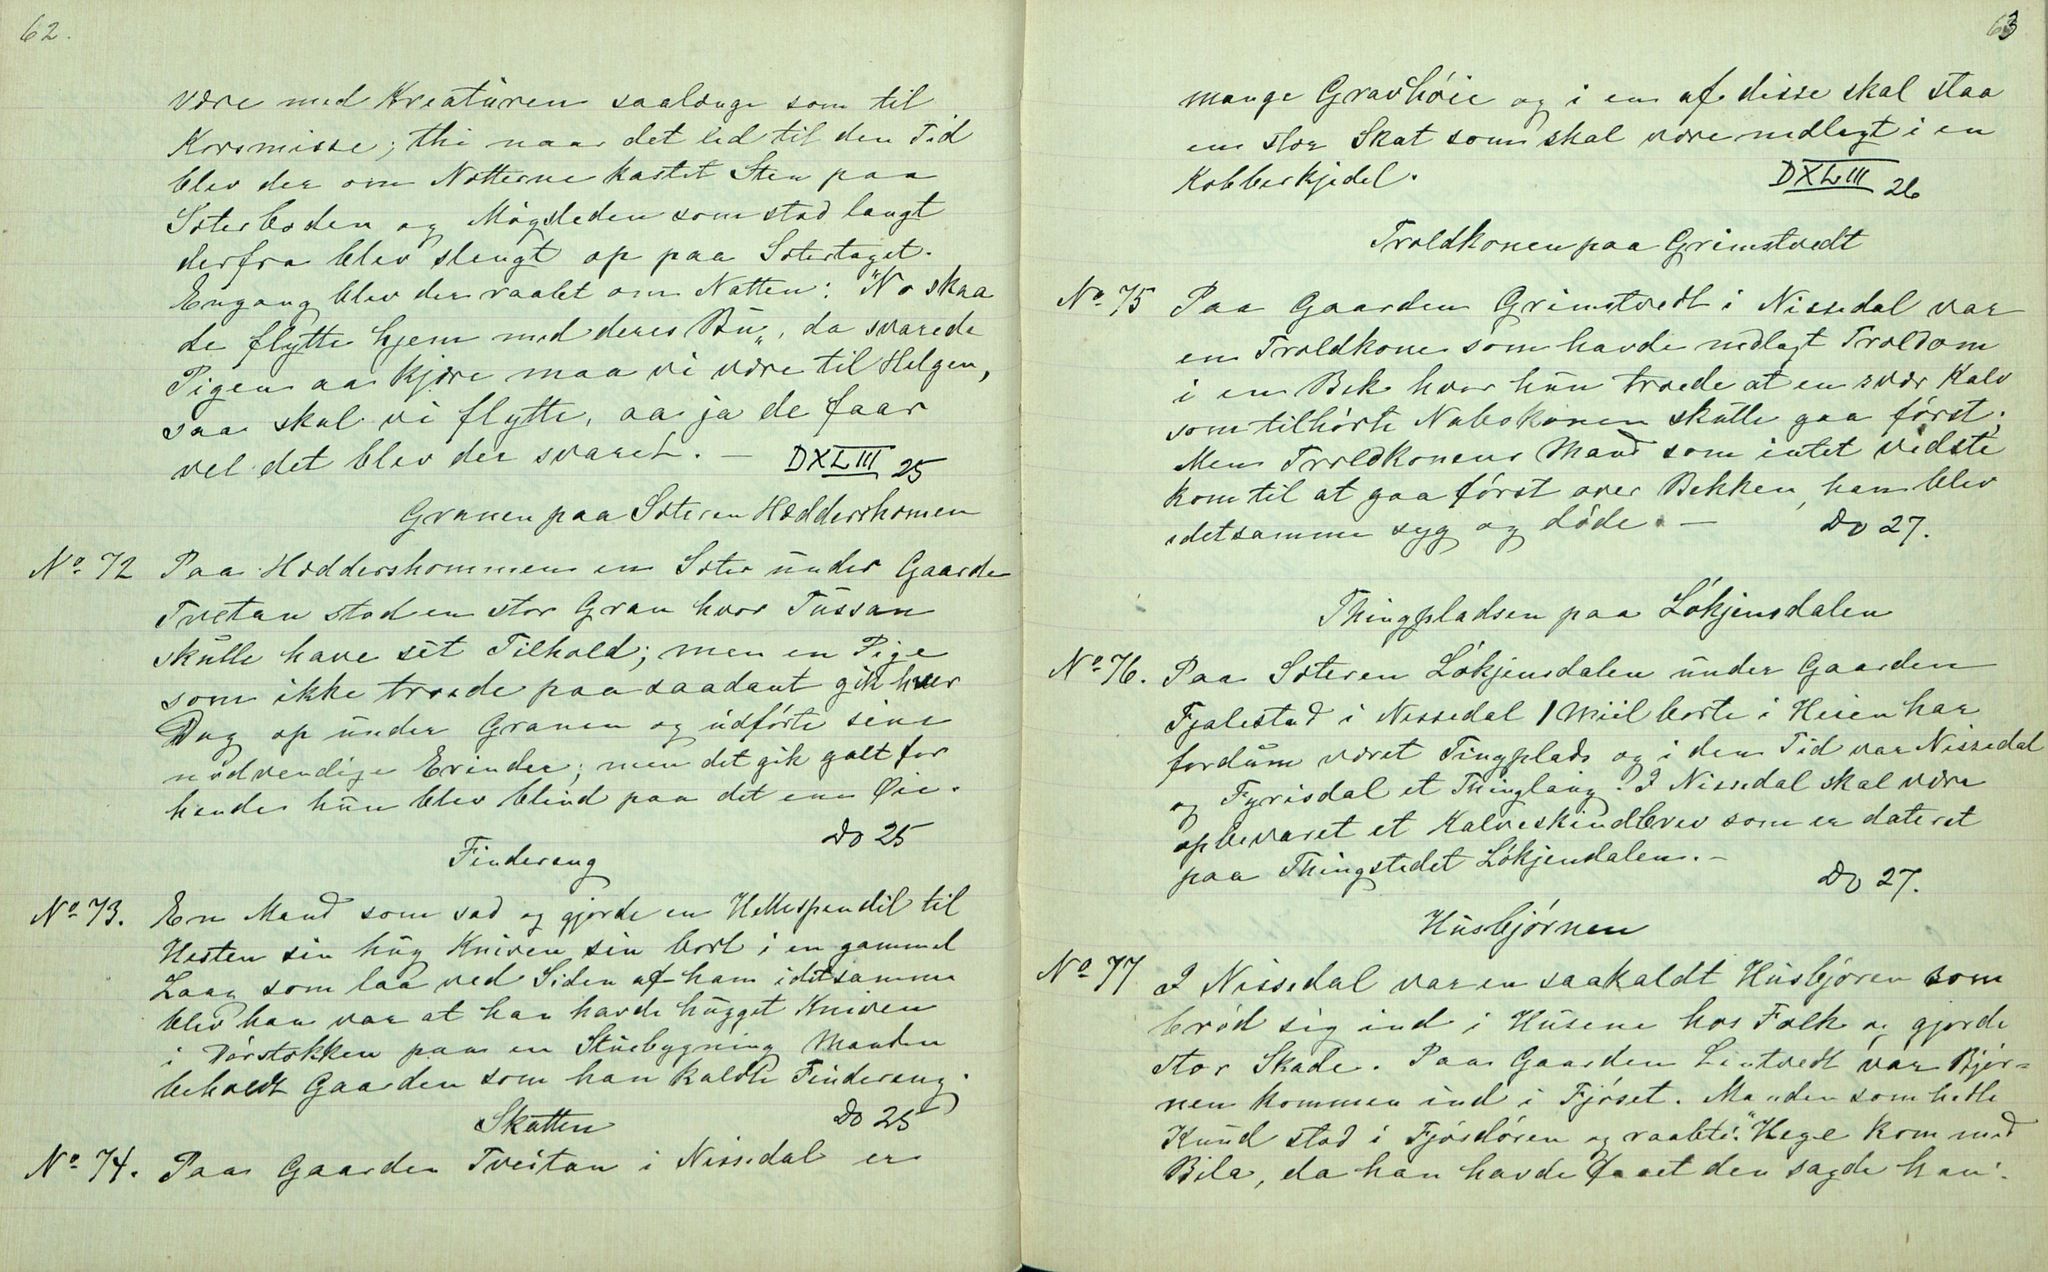 62.
være med Kreaturen saalænge som til
Korsmisse; thi naar det led til den Tid
blev der om Nætterne kastet Sten paa
Sæterboden og Møgsleden som stod langt
derfra blev slengt op paa Sætertaget.
Engang blev der raabt om Natten: "No skaa
de flytte hjem med deres Bu„, da svarede
Pigen aa kjære maa vi være til Helgen,
saa skal vi flytte, aa ja de faar
vel det blev der svaret. — DXLIII 25
Granen paa Sæteren Hæddershomen
No 72 Paa Hæddershommen en Sæter under Gaarde
Tveitan stod en stor Gran hvor Tussan
skulle have sit Tilhold; men en Pige
som ikke troede paa saadant gik hver
Dag op under Granen og udførte sine
nødvendige Erinder; men det gik galt for
hende hun blev blind paa det ene Øie.
Do 25
Finderaug
No 73. En Mand som sad og gjorde en Hettespendil til
Hesten sin hug Kniven sin bort i en gammel
Laag som laa ved Siden af ham idetsamme
blev han var at han havde hugget Kniven
i Dørstokken paa en Stuebygning Manden
beholdt Gaarden som han kaldte Finderaug.
Skatten Do 25
No 74. Paa Gaarden Tveitan i Nissedal er
63
mange Gravhøie og i en af disse skal staa
en stor Skat som skal være nedlagt i en
Kobberkjedel. DXLIII 26
Troldkonen paa Grimstvedt
No 75 Paa Gaarden Grimstvedt i Nissedal var
en Troldkone som havde nedlagt Troldom
i en Bek hvor hun troede at en svær Kalv
som tilhørte Nabokonen skulle gaa først;
Men Troldkonens Mand som intet vidste
kom til at gaa først over Bekken, han blev
idetsamme syg og døde. — Do 27.
Thingpladsen paa Løkjensdalen
No 76. Paa Sæteren Løkjensdalen under Gaarden
Fjalestad i Nissedal 1 Miil borte i Heien har
fordum været Tingplads og i den Tid var Nissedal
og Fyrisdal et Thinglaug. I Nissedal skal være
opbevaret et Kalveskindbrev som er dateret
paa Thingstedet Løkjendalen. —
Do 27.
Husbjørnen
No 77 I Nissedal var en saakaldt Husbjøren som
brød sig ind i Husene hos Folk og gjorde
stor Skade. Paa Gaarden Lintvedt var Bjør=
nen kommen ind i Fjøset. Manden som hedte
Knud stod i Fjøsdøren og raabte: "Hege kom med
Bila, da han havde faaet den sagde han: